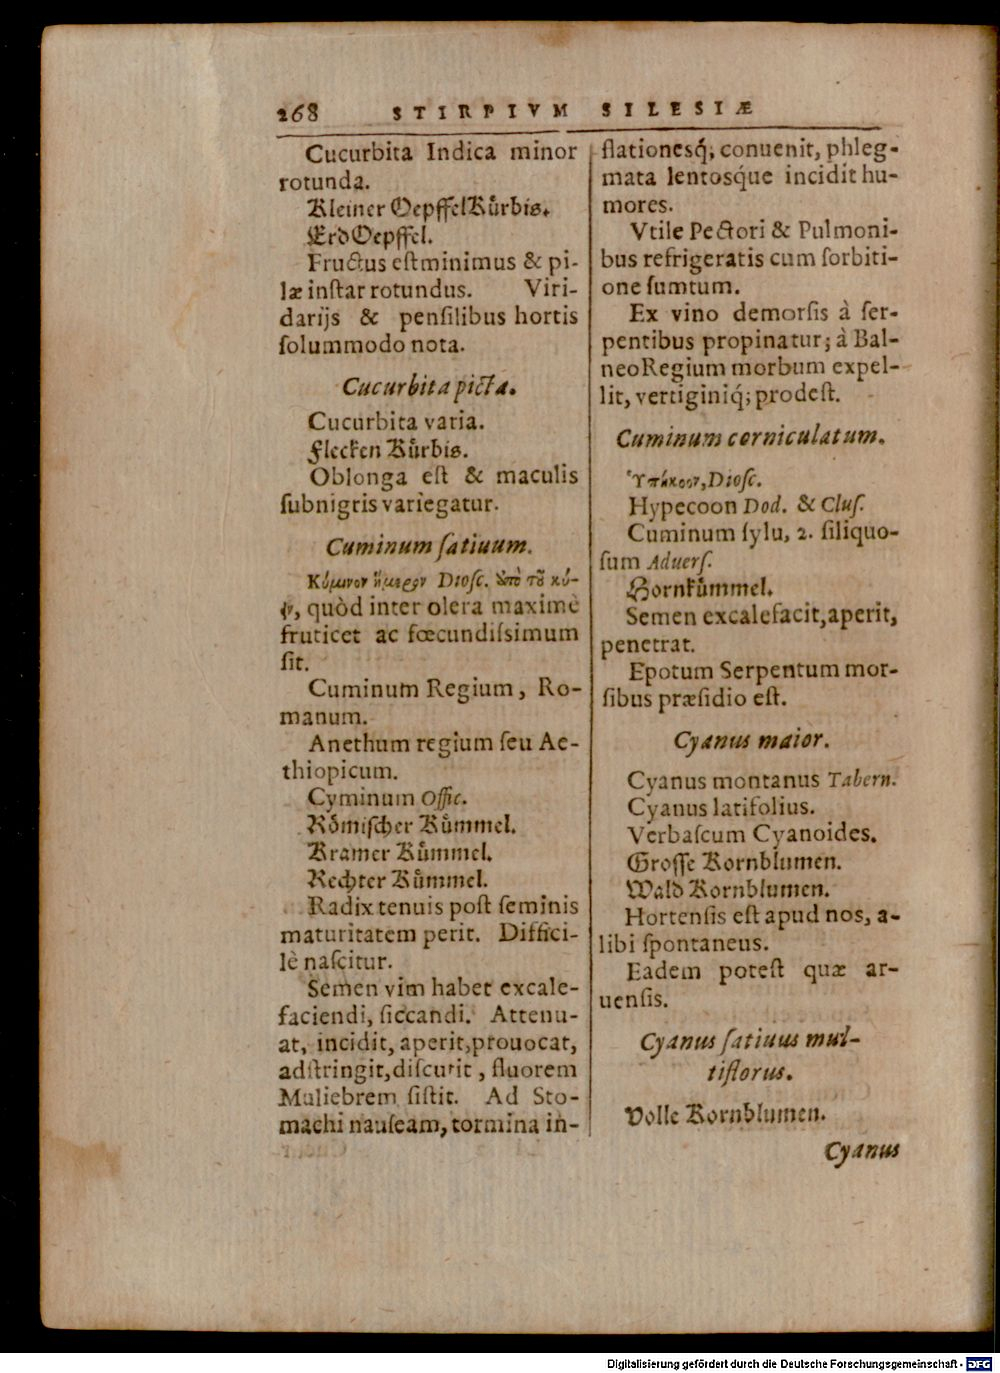 268 STIRPIVM SILESIÆ
Cucurbita Indica minor
rotunda.
Kleiner Oepffel Kuͤrbis.
Erd Oepffel.
Fructus est minimus & pi-
læ instar rotundus. Viri-
darijs & pensilibus hortis
solummodo nota.
Cucurbita picta.
Cucurbita varia.
Flecken Kuͤrbis.
Oblonga est & maculis
subnigris variegatur.
Cuminum satiuum.
Κύμινον ἥμερον Diosc. ὑπὸ τοῦ κύ-
quòd inter olera maximè
fruticet ac fœcundissimum
sit.
Cuminum Regium, Ro-
manum.
Anethum regium seu Ae-
thiopicum.
Cyminum Offic.
Roͤmischer Kuͤmmel.
Kramer Kuͤmmel.
Rechter Kuͤmmel.
Radix tenuis post seminis
maturitatem perit. Diffici-
lè nascitur.
Semen vim habet excale-
faciendi, siccandi. Attenu-
at, incidit, aperit, prouocat,
adstringit, discutit, fluorem
Muliebrem sistit. Ad Sto-
machi nauseam, tormina in-
flationesq́; conuenit, phleg-
mata lentosq́ue incidit hu-
mores.
Vtile Pectori & Pulmoni-
bus refrigeratis cum sorbiti-
one sumtum.
Ex vino demorsis à ser-
pentibus propinatur; à Bal-
neo Regium morbum expel-
lit, vertiginiq́; prodest.
Cuminum corniculatum.
Ὑπήκοον, Diosc.
Hypecoon Dod. & Clus.
Cuminum sylu, 2. siliquo-
sum Aduers.
Hornkuͤmmel.
Semen excalefacit, aperit,
penetrat.
Epotum Serpentum mor-
sibus præsidio est.
Cyanus maior.
Cyanus montanus Tabern.
Cyanus latifolius.
Verbascum Cyanoides.
Grosse Kornblumen.
Wald Kornblumen.
Hortensis est apud nos, a-
libi spontaneus.
Eadem potest quæ ar-
uensis.
Cyanus satiuus mul-
tiflorus.
Volle Kornblumen.
Cyanus
Digitalisierung gefördert durch die Deutsche Forschungsgemeinschaft - DFG